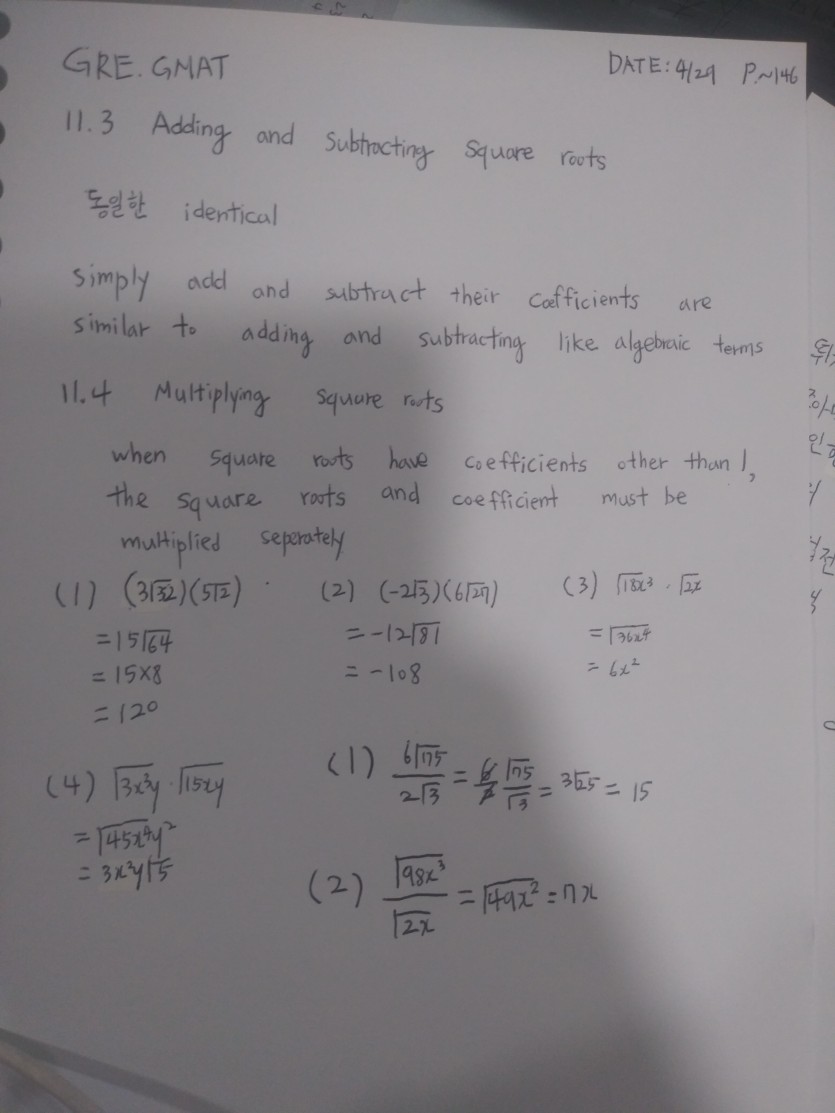 GRE. GMAT
DATE: 4/29 P.~146
11.3 Adding and subtracting square roots
동일한 identical
simply add and subtract their coefficients are
similar to adding and subtracting like algebraic terms
11.4 Multiplying square roots
when square roots have coefficients other than 1,
the square roots and coefficient must be
multiplied seperately
(1) (3√32)(5√2)
= 15√64
= 15×8
= 120
(2) (-2√3)(6√27)
= -12√81
= -108
(3) √18x³ · √2x
= √36x⁴
= 6x²
(4) √3x³y · √15xy
= √45x⁴y²
= 3x²y√5
(1) 6√75/2√3 = 6/2 √75/√3 = 3√25 = 15
(2) √98x³/√2x = √49x² = 7x